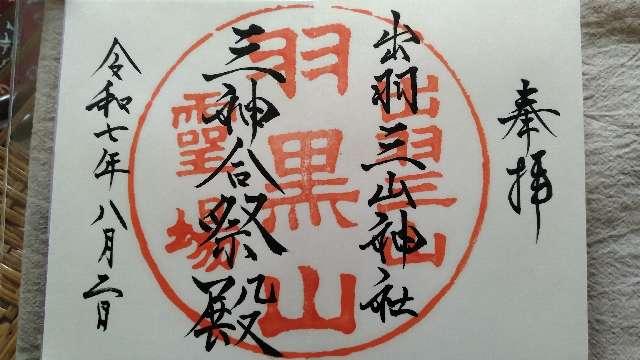 奉拝
出羽三山神社
三神合祭殿
令和七年八月二日
出羽三山
羽黒山
霊場